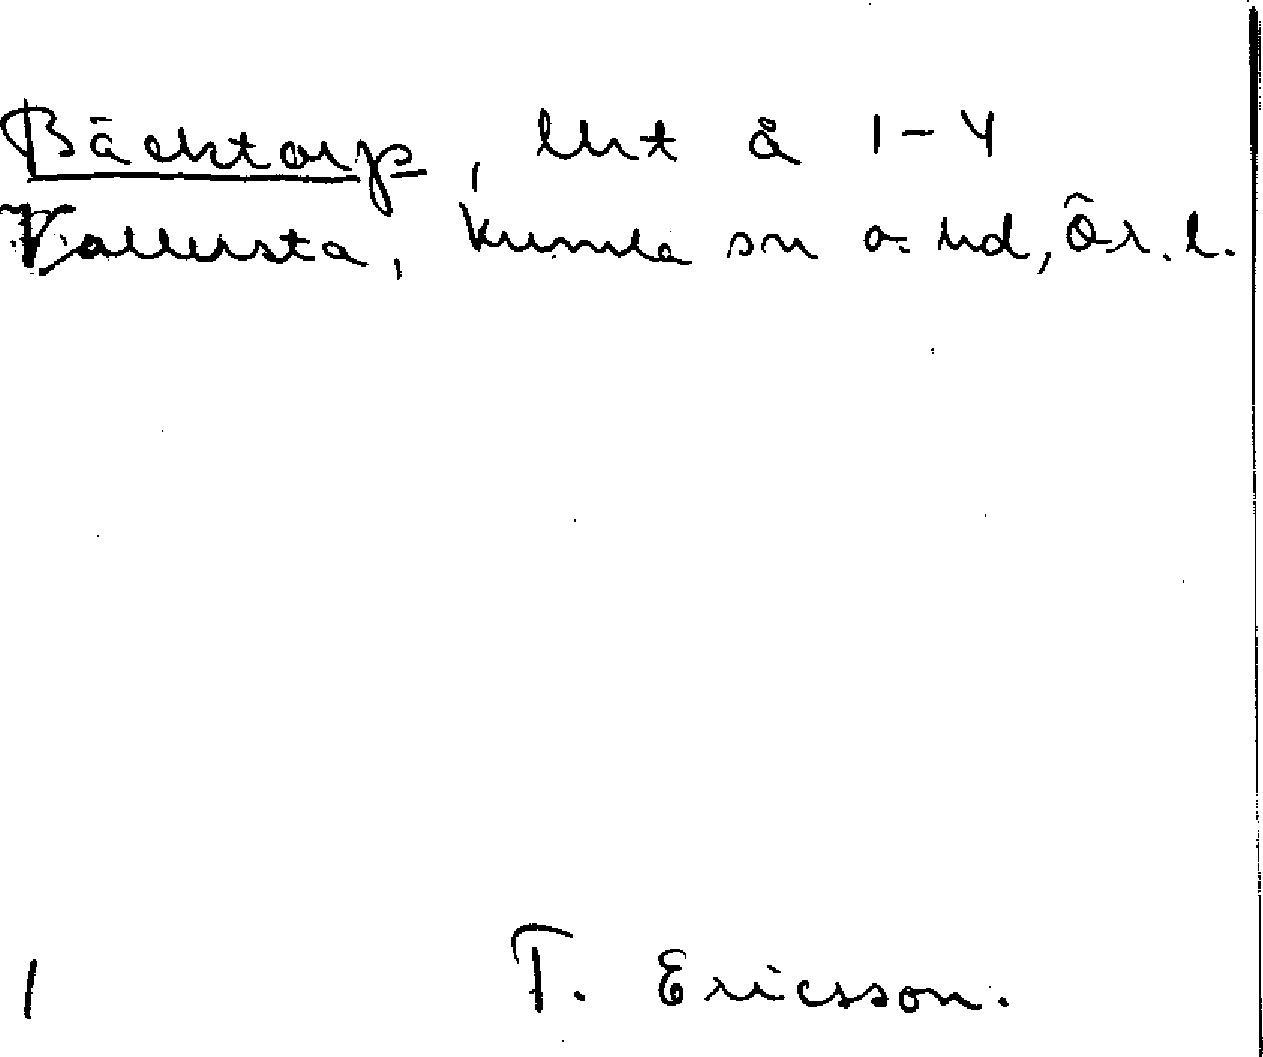 Bäcktorp, lht å 1-4
Vallersta, Kumla sn o. hd, Ör. l.
1 T. Ericsson.